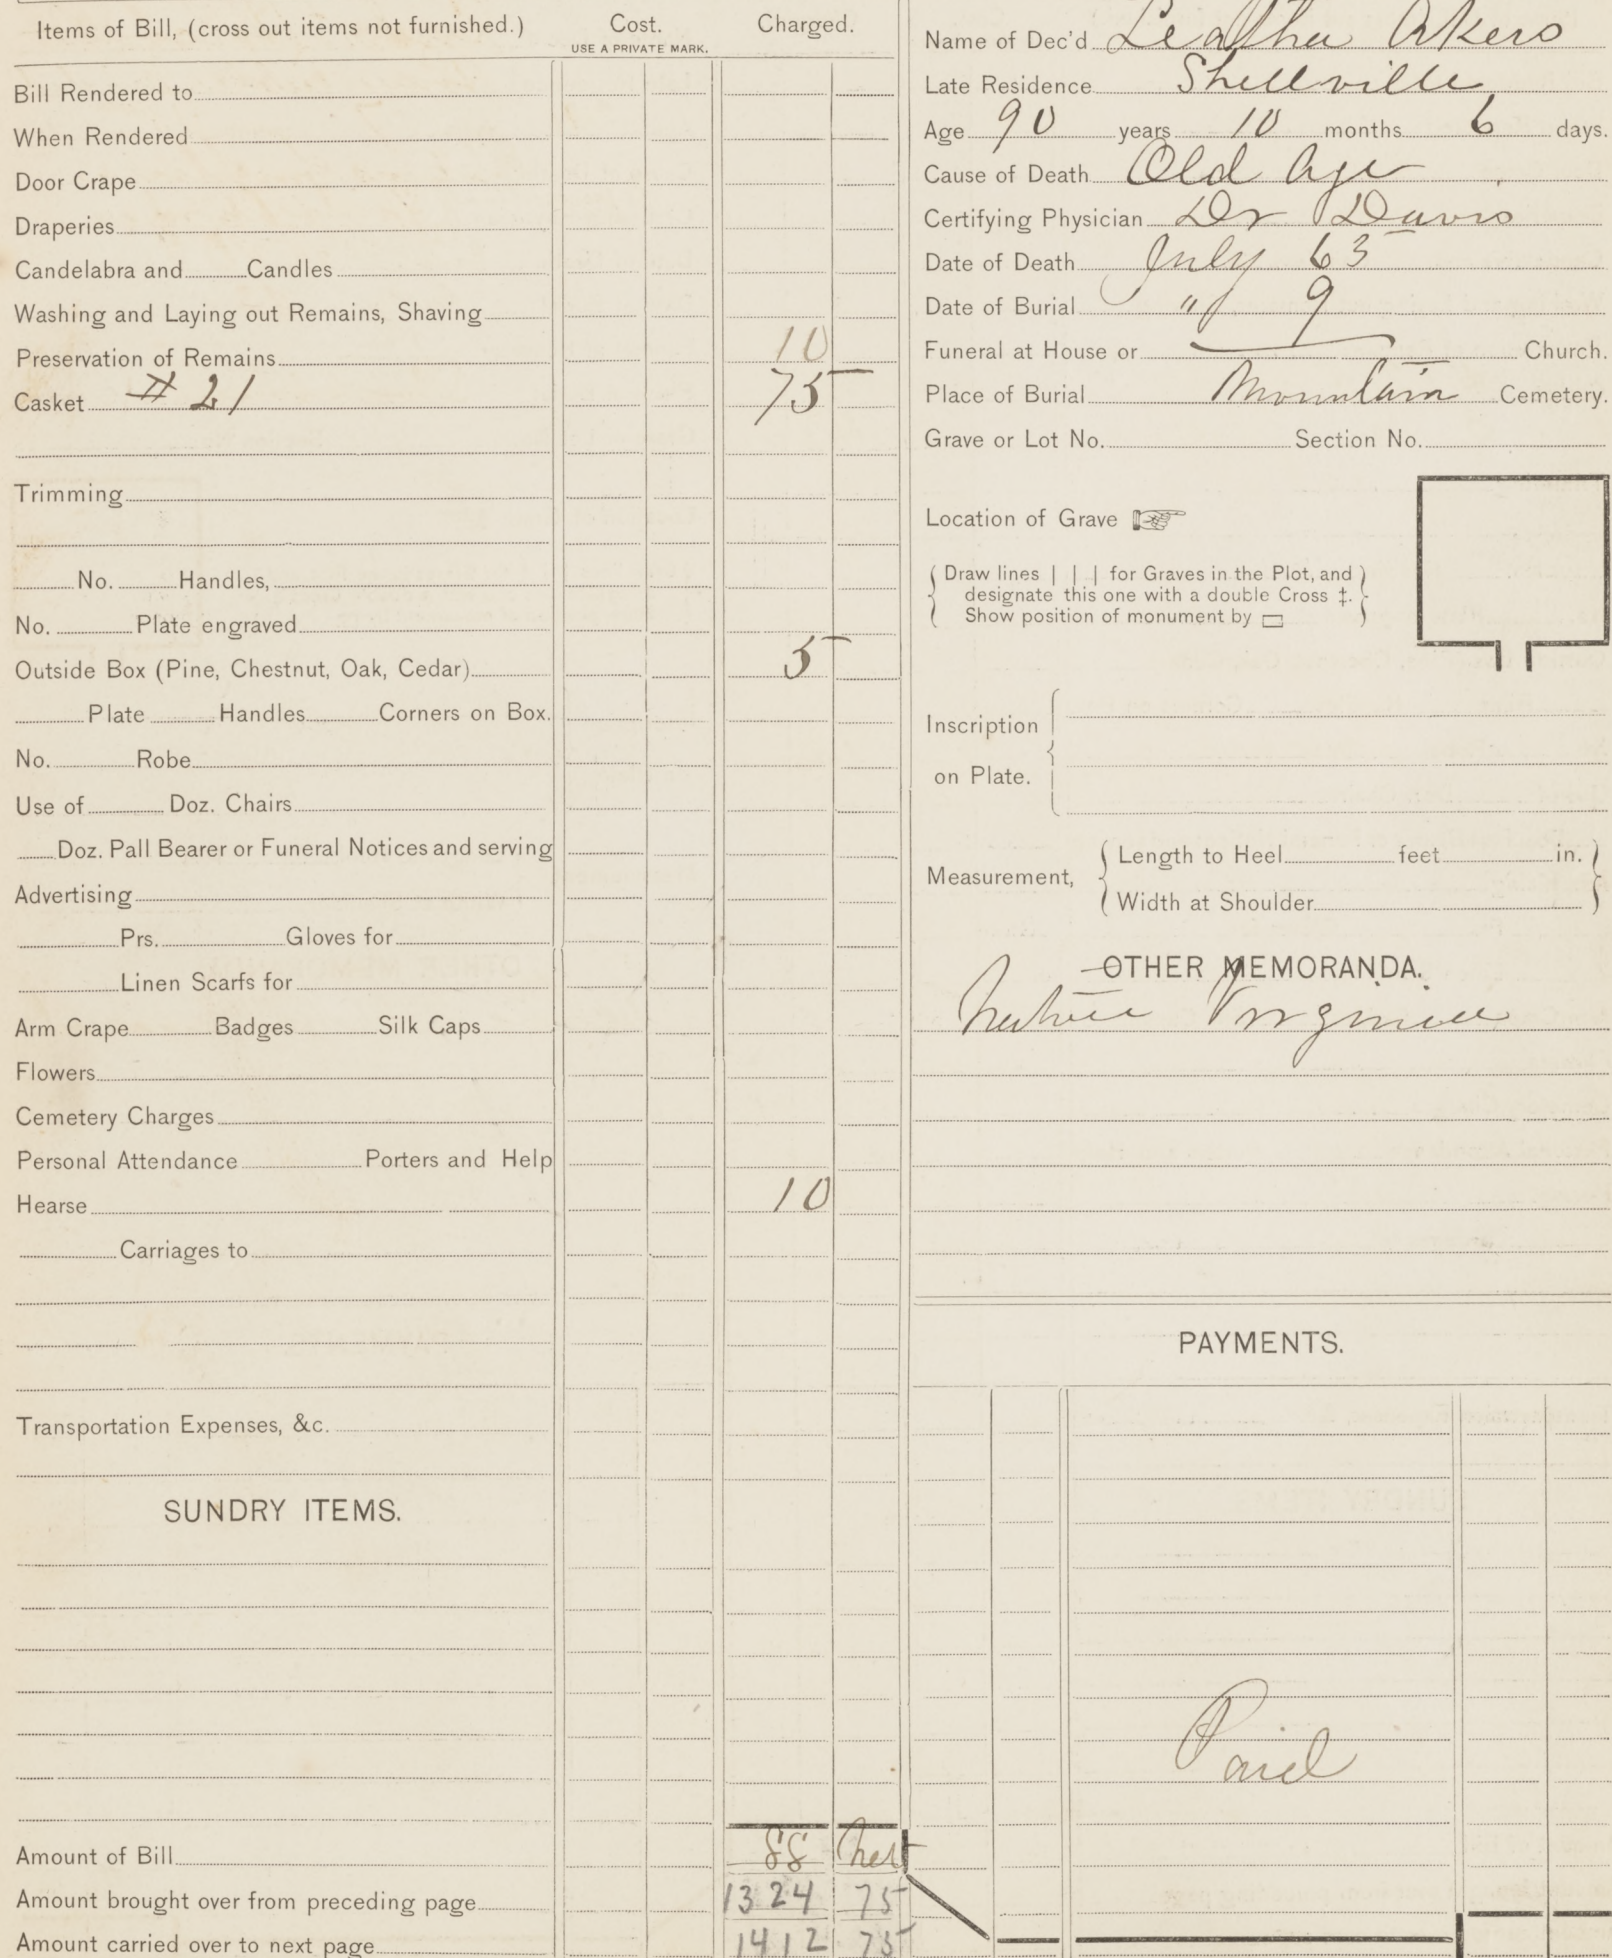 Items of Bill, (cross out items not furnished.) Cost. Charged.
USE A PRIVATE MARK.
Bill Rendered to
When Rendered
Door Crape
Draperies
Candelabra and Candles
Washing and Laying out Remains, Shaving
Preservation of Remains 10
Casket # 21 75
Trimming
No. Handles,
No. Plate engraved
Outside Box (Pine, Chestnut, Oak, Cedar) 5
Plate Handles Corners on Box.
No. Robe
Use of Doz. Chairs
Doz. Pall Bearer or Funeral Notices and serving
Advertising
Prs. Gloves for
Linen Scarfs for
Arm Crape Badges Silk Caps
Flowers
Cemetery Charges
Personal Attendance Porters and Help
Hearse 10
Carriages to
Transportation Expenses, &c.
SUNDRY ITEMS.
Amount of Bill 88 net
Amount brought over from preceding page 1324 75
Amount carried over to next page 1412 75
Name of Dec'd Leatha Akers
Late Residence Shellville
Age 90 years 10 months 6 days.
Cause of Death Old Age
Certifying Physician Dr Davis
Date of Death July 63
Date of Burial " 9
Funeral at House or Church.
Place of Burial Mountain Cemetery.
Grave or Lot No. Section No.
Location of Grave
Draw lines | | | for Graves in the Plot, and
designate this one with a double Cross ‡.
Show position of monument by
Inscription
on Plate.
Measurement,
Length to Heel feet in.
Width at Shoulder
OTHER MEMORANDA.
Native Virginia
PAYMENTS.
Paid